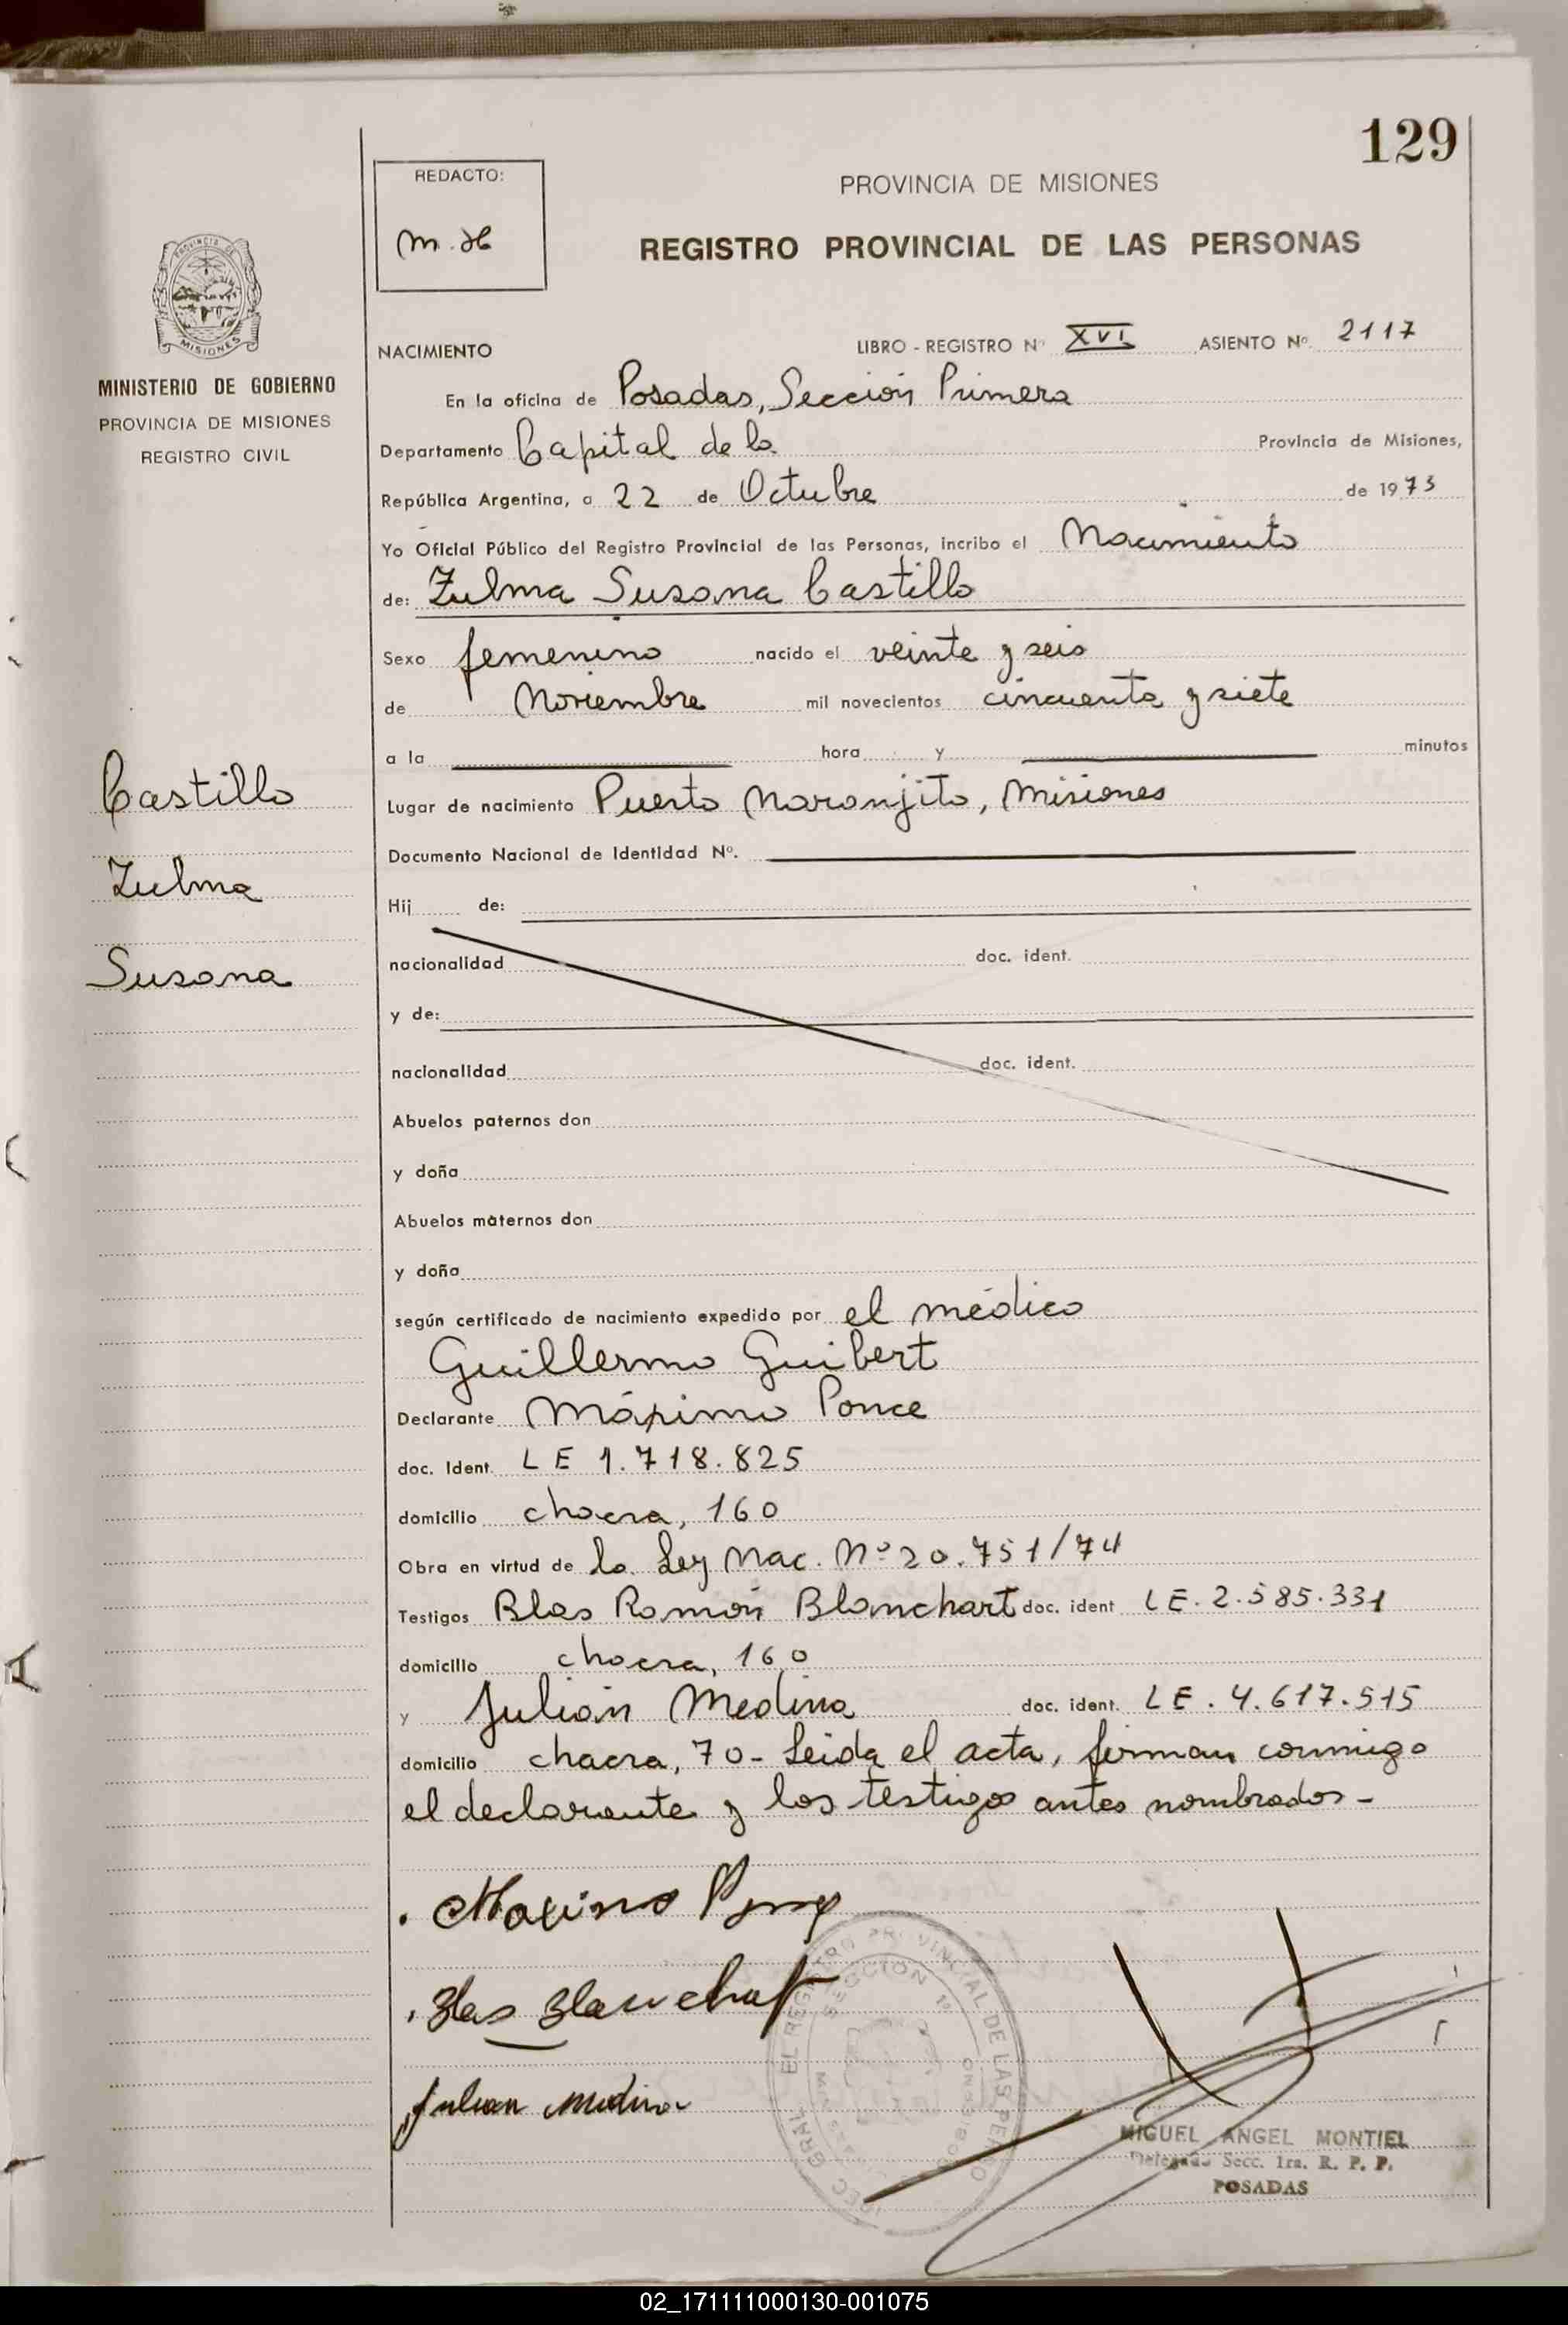 129
REDACTO:
M. H
PROVINCIA DE MISIONES
REGISTRO PROVINCIAL DE LAS PERSONAS
MISIONES
MINISTERIO DE GOBIERNO
PROVINCIA DE MISIONES
REGISTRO CIVIL
NACIMIENTO LIBRO - REGISTRO Nº XVI ASIENTO Nº 2117
En la oficina de Posadas, Sección Primera
Departamento Capital de la Provincia de Misiones,
República Argentina, a 22 de Octubre de 1975
Yo Oficial Público del Registro Provincial de las Personas, incribo el Nacimiento
de: Zulma Susana Castillo
Sexo femenino nacido el veinte y seis
de Noviembre mil novecientos cincuenta y siete
a la hora y minutos
Lugar de nacimiento Puerto Naranjito, Misiones
Documento Nacional de Identidad Nº.
Castillo
Zulma
Susana
Hij de:
nacionalidad doc. ident.
y de:
nacionalidad doc. ident.
Abuelos paternos don
y doña
Abuelos maternos don
y doña
según certificado de nacimiento expedido por el médico
Guillermo Guibert
Declarante Máximo Ponce
doc. Ident. LE 1.718.825
domicilio chacra, 160
Obra en virtud de la Ley Nac. Nº 20.751/74
Testigos Blas Ramón Blanchart doc. ident LE. 2.585.331
domicilio chacra, 160
y Julián Medina doc. ident. LE. 4.617.515
domicilio chacra, 70- Leida el acta, firman conmigo
el declarante y los testigos antes nombrados-
Maximo
Blas Blanchart
Julian Medina
SECCION 1ª
MIGUEL ANGEL MONTIEL
Delegado Secc. 1ra. R. P. P.
POSADAS
02_171111000130-001075